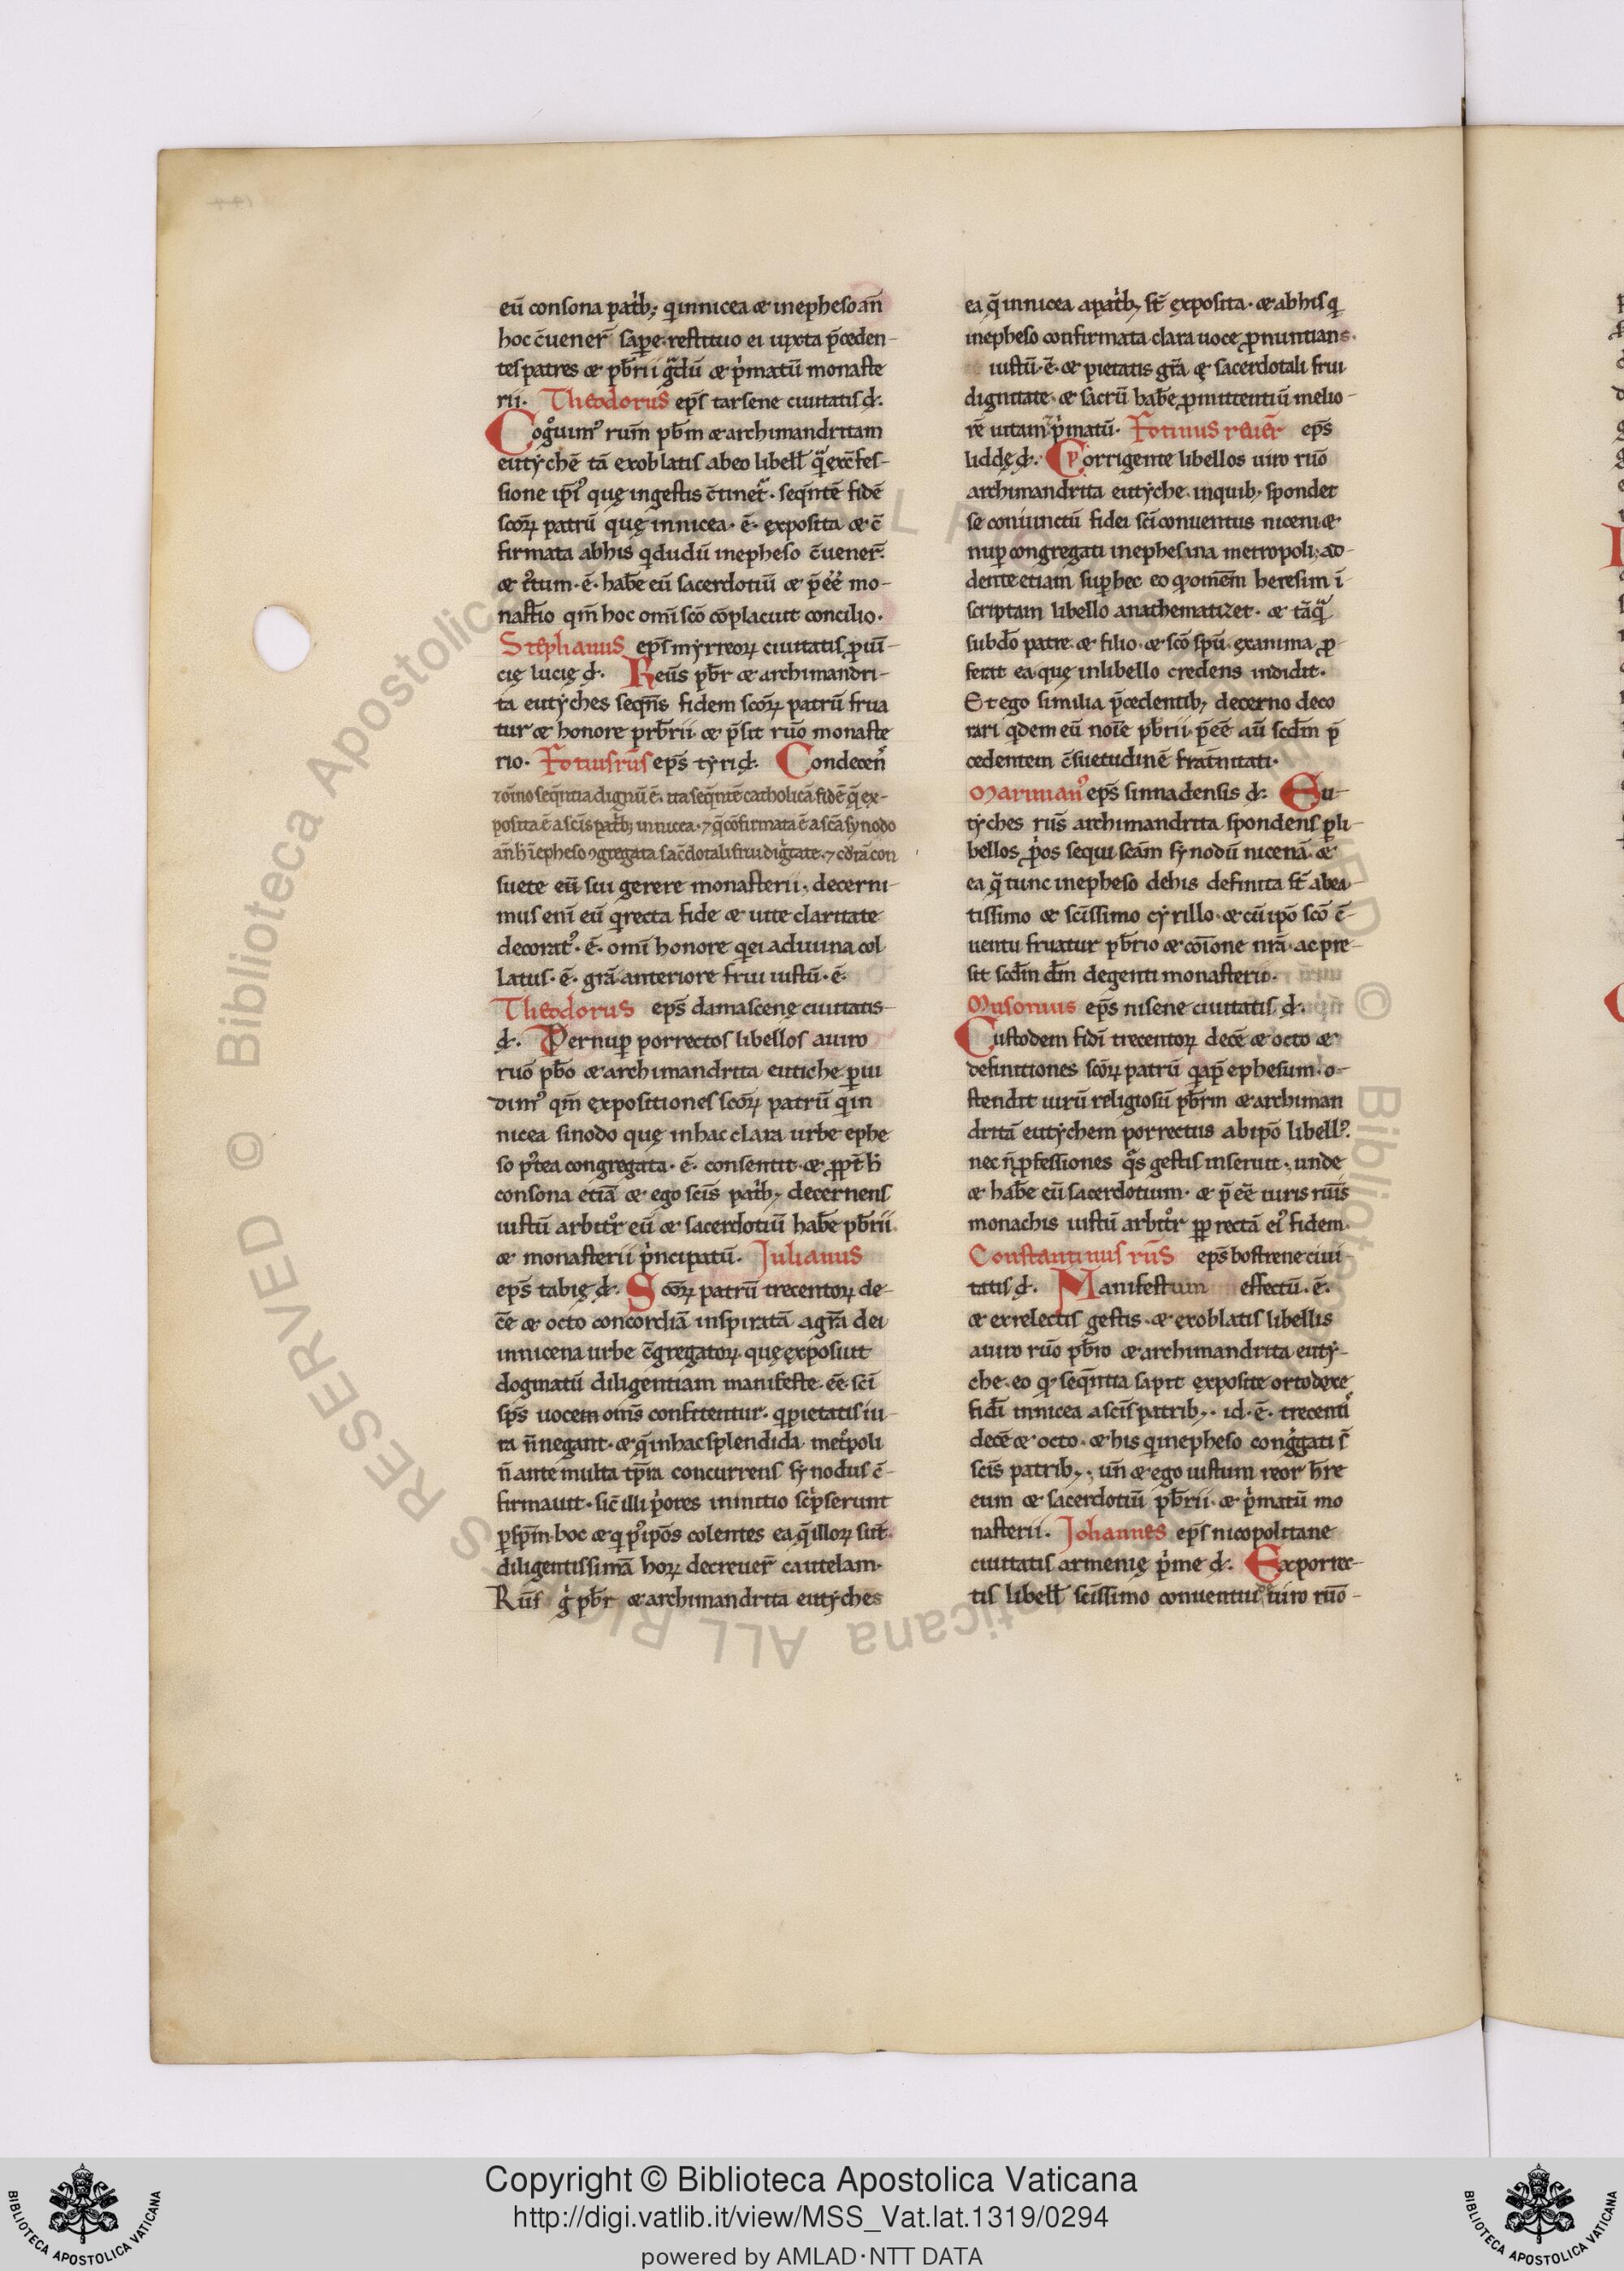 eu͂ consona patͥbꝫ qͥ innicea & inepheso añ
hoc c̄uener̄ sapͤe restituo ei iuxta p̄ceden-
tes patres & pb̄rii gͣdū & pͥmatū monaste
rii. Theodorus ep̄s tarsene ciuitatis d̵.
Cogͦuimꝰ rum̄ pb̄m & archimandritam
eutychē tā exoblatis abeo libell̄ qͣ̄ exc̄fes-
sione ip̄iꝰ quę ingestis c̄tinetᷣ. seqn̄tē fidē
sc̄oꝝ patrū quę innicea. ē. exposita & c̄
firmata abhis qͥ dudū inepheso c̄uener̄.
& c̄tum. ē. habēe eū sacerdotiū & p̄éé mo-
nastīo qm̄ hoc om̄i sc̄o cōplacuit concilio.
Stephanus ep̄s myrreoꝝ ciuitatis ꝓuī-
cię lucię d̵. Reūs pb̄r & archimandri-
ta eutyches seqn̄s fidem sc̄oꝝ patrū frua
tur & honore prb̄rii & p̄sit ruo monaste
rio. Fotius rus̄ ep̄s tyri d̵. Condecen̄
posita ē a sc̄is patͥbꝫ innicea. ⁊ q̄ cōfirmata ē a sc̄a synodo
suete eū sui gerere monasterii. decerni-
mus eni eū qͥ recta fide & uite claritate
decoratꝰ. ē. om̄i honore qͥ ei adiuina col
latus. ē. grā anteriore frui iustū. ē.
Theodorus ep̄s damascenę ciuitatis-
d̵. Pernuꝑ porrectos libellos auiro
ruō pb̄o & archimandrita eutiche ꝑui
dimꝰ qm̄ expositiones sc̄oꝝ patrū qͥ in
nicea sinodo quę inhac clara urbe ephe
so pꝰtea congregata. ē. consentit. & ꝓpt̄ h̄
consona etiā & ego sc̄is patͥbꝫ. decernens
iustū arbitͦr eū & sacerdotiū habē pb̄rii.
& monasterii pͥncipatū. Julianus
ep̄s tabię d̵. Sc̄oꝝ patrū trecentoꝝ de-
cē & octo concordiā inspiratā agrā dei
innicena urbe c̄gregatoꝝ quę exposuit
dogmatū diligentiam manifeste ēē sc̄i
sp̄s uocem om̄s confitentur. qͥ pietatis iu-
ra n̄ negant. & q̄ inhac splendida metͦpoli
n̄ ante multa tp̄ra concurrens synodus c̄-
firmauit. sic̄ illi pͥores ininitio scͥpserunt
ꝑsp̄m. hoc & qͥ pꝰ ipōs colentes ea q̄ illoꝝ sūt.
diligentissimā hoꝝ decreuer̄ cautelam.
Rūs gͥ pb̄r & archimandrita eutyches
ea q̄ innicea apatͥbꝫ st̄ exposita. & abhis qͥ
inepheso confirmata clara uoce ꝓnuntians.
iustū. ē. & pietatis grā & sacerdotali frui
dignitate. & sacrū habē ꝓmittentiū melio-
rē uitam pͥmatū. Fotinus reuer̄ ep̄s
liddę d̵. Porrigente libellos uiro ruō
archimandrita eutyche. inquibꝫ spondet
se coniunctū fidei sc̄i conuentus niceni &
nuꝑ congregati inephesina metropoli. ad-
dente etiam suꝑ hec eo qͦ om̄em heresim ī-
scriptam libello anathematizet. & tāqͣ̄
subdō patre. & filio. & sc̄o sp̄u. ex anima ꝓ-
ferat ea quę inlibello credens indidit.
Et ego similia p̄cedentibꝫ decerno deco
rari qͥdem eū noīe pb̄rii. p̄éé aū scd̄m p̄
cedentem c̄suetudinē frat̄nitati.
Marinianꝰ ep̄s sinnadensis d̵. Eu-
tyches rūs archimandrita spondens ꝑ li-
bellos ꝓos sequi sc̄am synodū nicenā. &
ea q̄ tunc inepheso dehis definita st̄ abea-
tissimo & sc̄issimo cyrillo. & cū ipō sc̄o c̄-
uentu fruatur pb̄rio & cōione nrā. ac pre-
sit scd̄m dm̄ degenti monasterio.
Musonius ep̄s nisene ciuitatis d̵.
Custodem fidī trecentoꝝ decē & octo &
definitiones sc̄oꝝ patrū qͥ ap̄ ephesum. o-
stendit uirū religiosū pb̄rm & archiman
dritā eutychem porrectus abipō libellꝰ.
nec n̄ ꝓfessiones qͣs gestis inseruit. unde
& habē eū sacerdotium. & p̄ éē iuris rūis
monachis iustū arbitͦr ꝓp̄ rectā eiꝰ fidem.
Constantinus rūs ep̄s bostrene ciui-
tatis d̵. Manifestum effectū. ē.
& ex relectis gestis. & exoblatis libellis
auiro ruō pb̄ro & archimandrita euty-
che. eo qͦ seqn̄tia sapit exposite ortodoxe
fidī innicea a sc̄is patribꝫ. id. ē. trecentī
decē & octo. & his qͥ inepheso congͥgati s̄
sc̄is patribꝫ. un̄ & ego iustum reor h̄re
eum & sacerdotiū pb̄rii. & pͥmatū mo
nasterii. Johannes ep̄s nicopolitane
ciuitatis armenię pͥme d̵. Exporrec-
tis libell̄ sc̄issimo conuentui auiro ruō-
Copyright © Biblioteca Apostolica Vaticana
http://digi.vatlib.it/view/MSS_Vat.lat.1319/0294
powered by AMLAD·NTT DATA
BIBLIOTECA APOSTOLICA VATICANA
BIBLIOTECA APOSTOLICA VATICANA